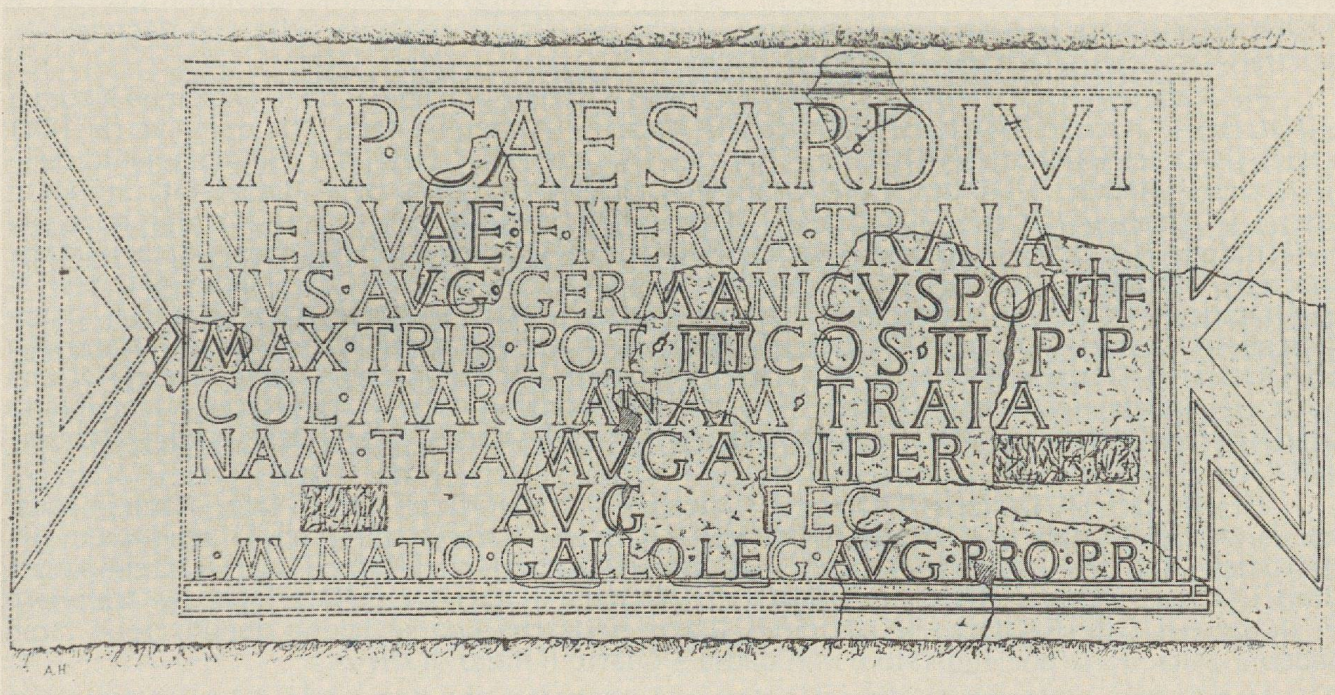 IMP·CAESAR·DIVI
NERVAE·F·NERVA·TRAIA
NVS·AVG·GERMANICVS PONTIF
MAX·TRIB·POT·IIII COS·III P·P
COL·MARCIANAM·TRAIA
NAM·THAMVGADI PER
AVG FEC
L·MVNATIO·GALLO·LEG·AVG·PRO·PR
A.H